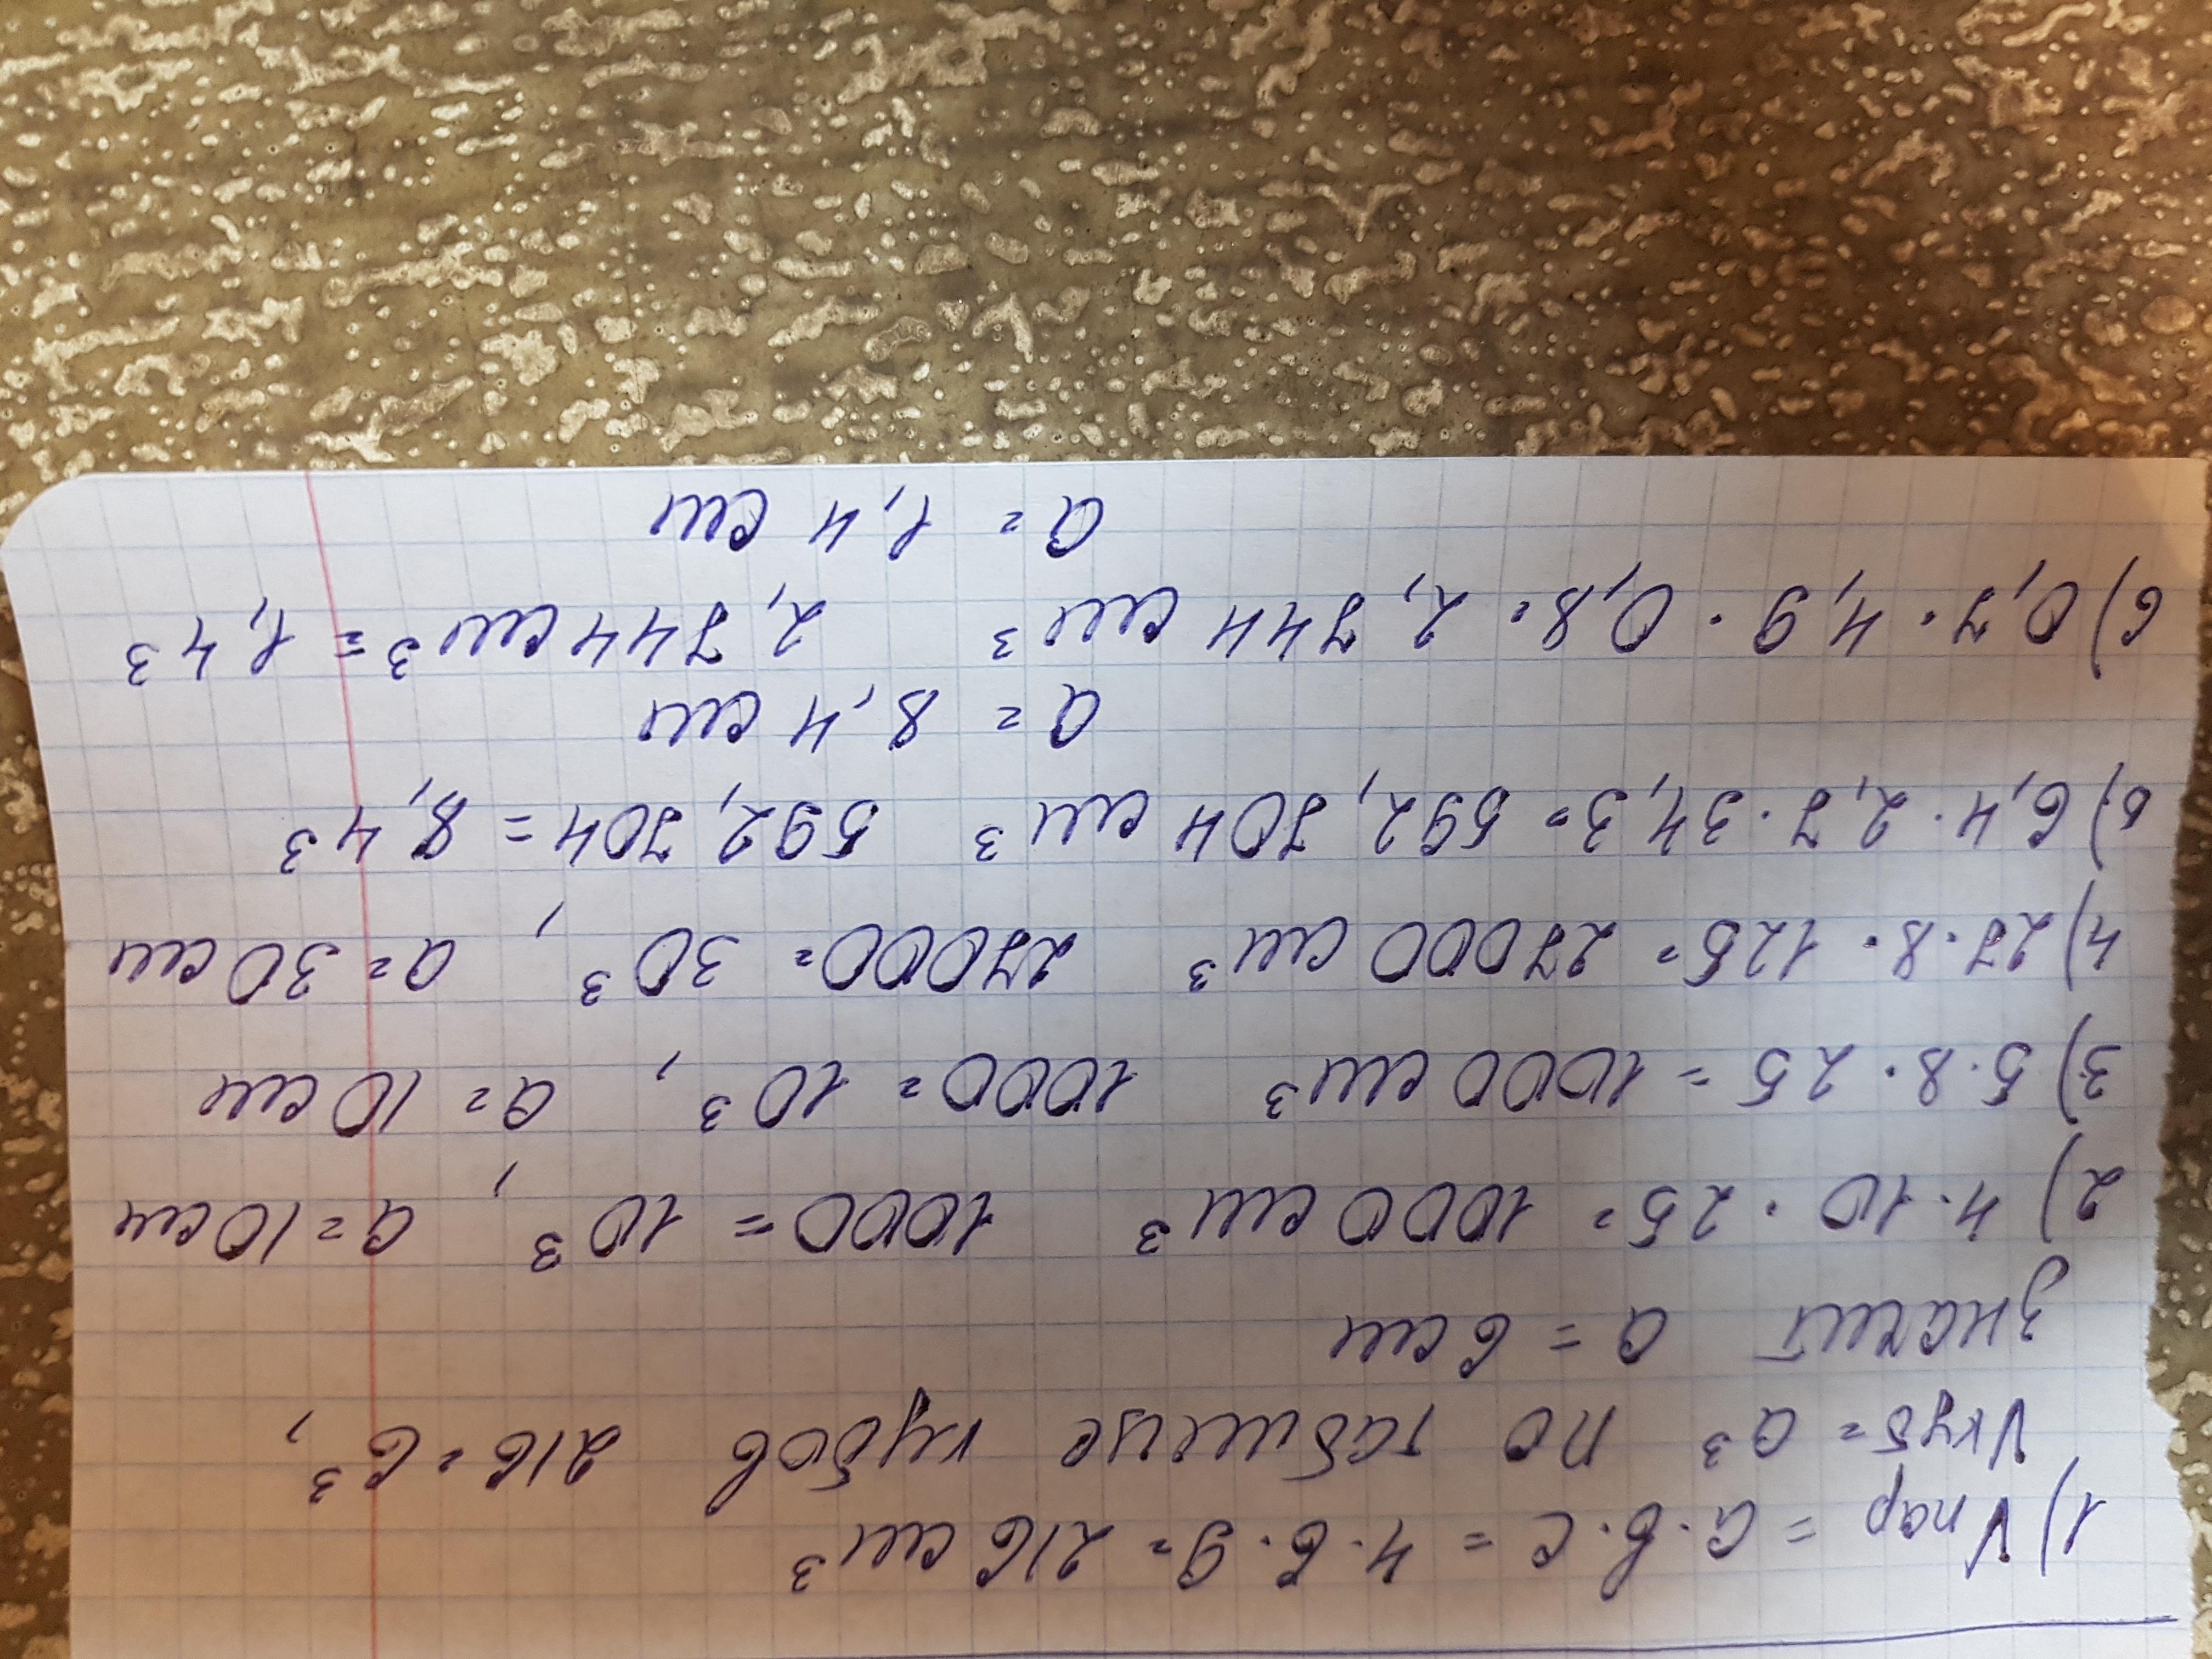 1) Vпар = a · b · c = 4 · 6 · 9 = 216 см³
Vкуб = a³ по таблице кубов 216 = 6³,
значит a = 6 см
2) 4 · 10 · 25 = 1000 см³ 1000 = 10³, a = 10 см
3) 5 · 8 · 25 = 1000 см³ 1000 = 10³, a = 10 см
4) 27 · 8 · 125 = 27000 см³ 27000 = 30³, a = 30 см
5) 6,4 · 2,7 · 34,3 = 592,704 см³ 592,704 = 8,4³
a = 8,4 см
6) 0,7 · 4,9 · 0,8 = 2,744 см³ 2,744 см³ = 1,4³
a = 1,4 см